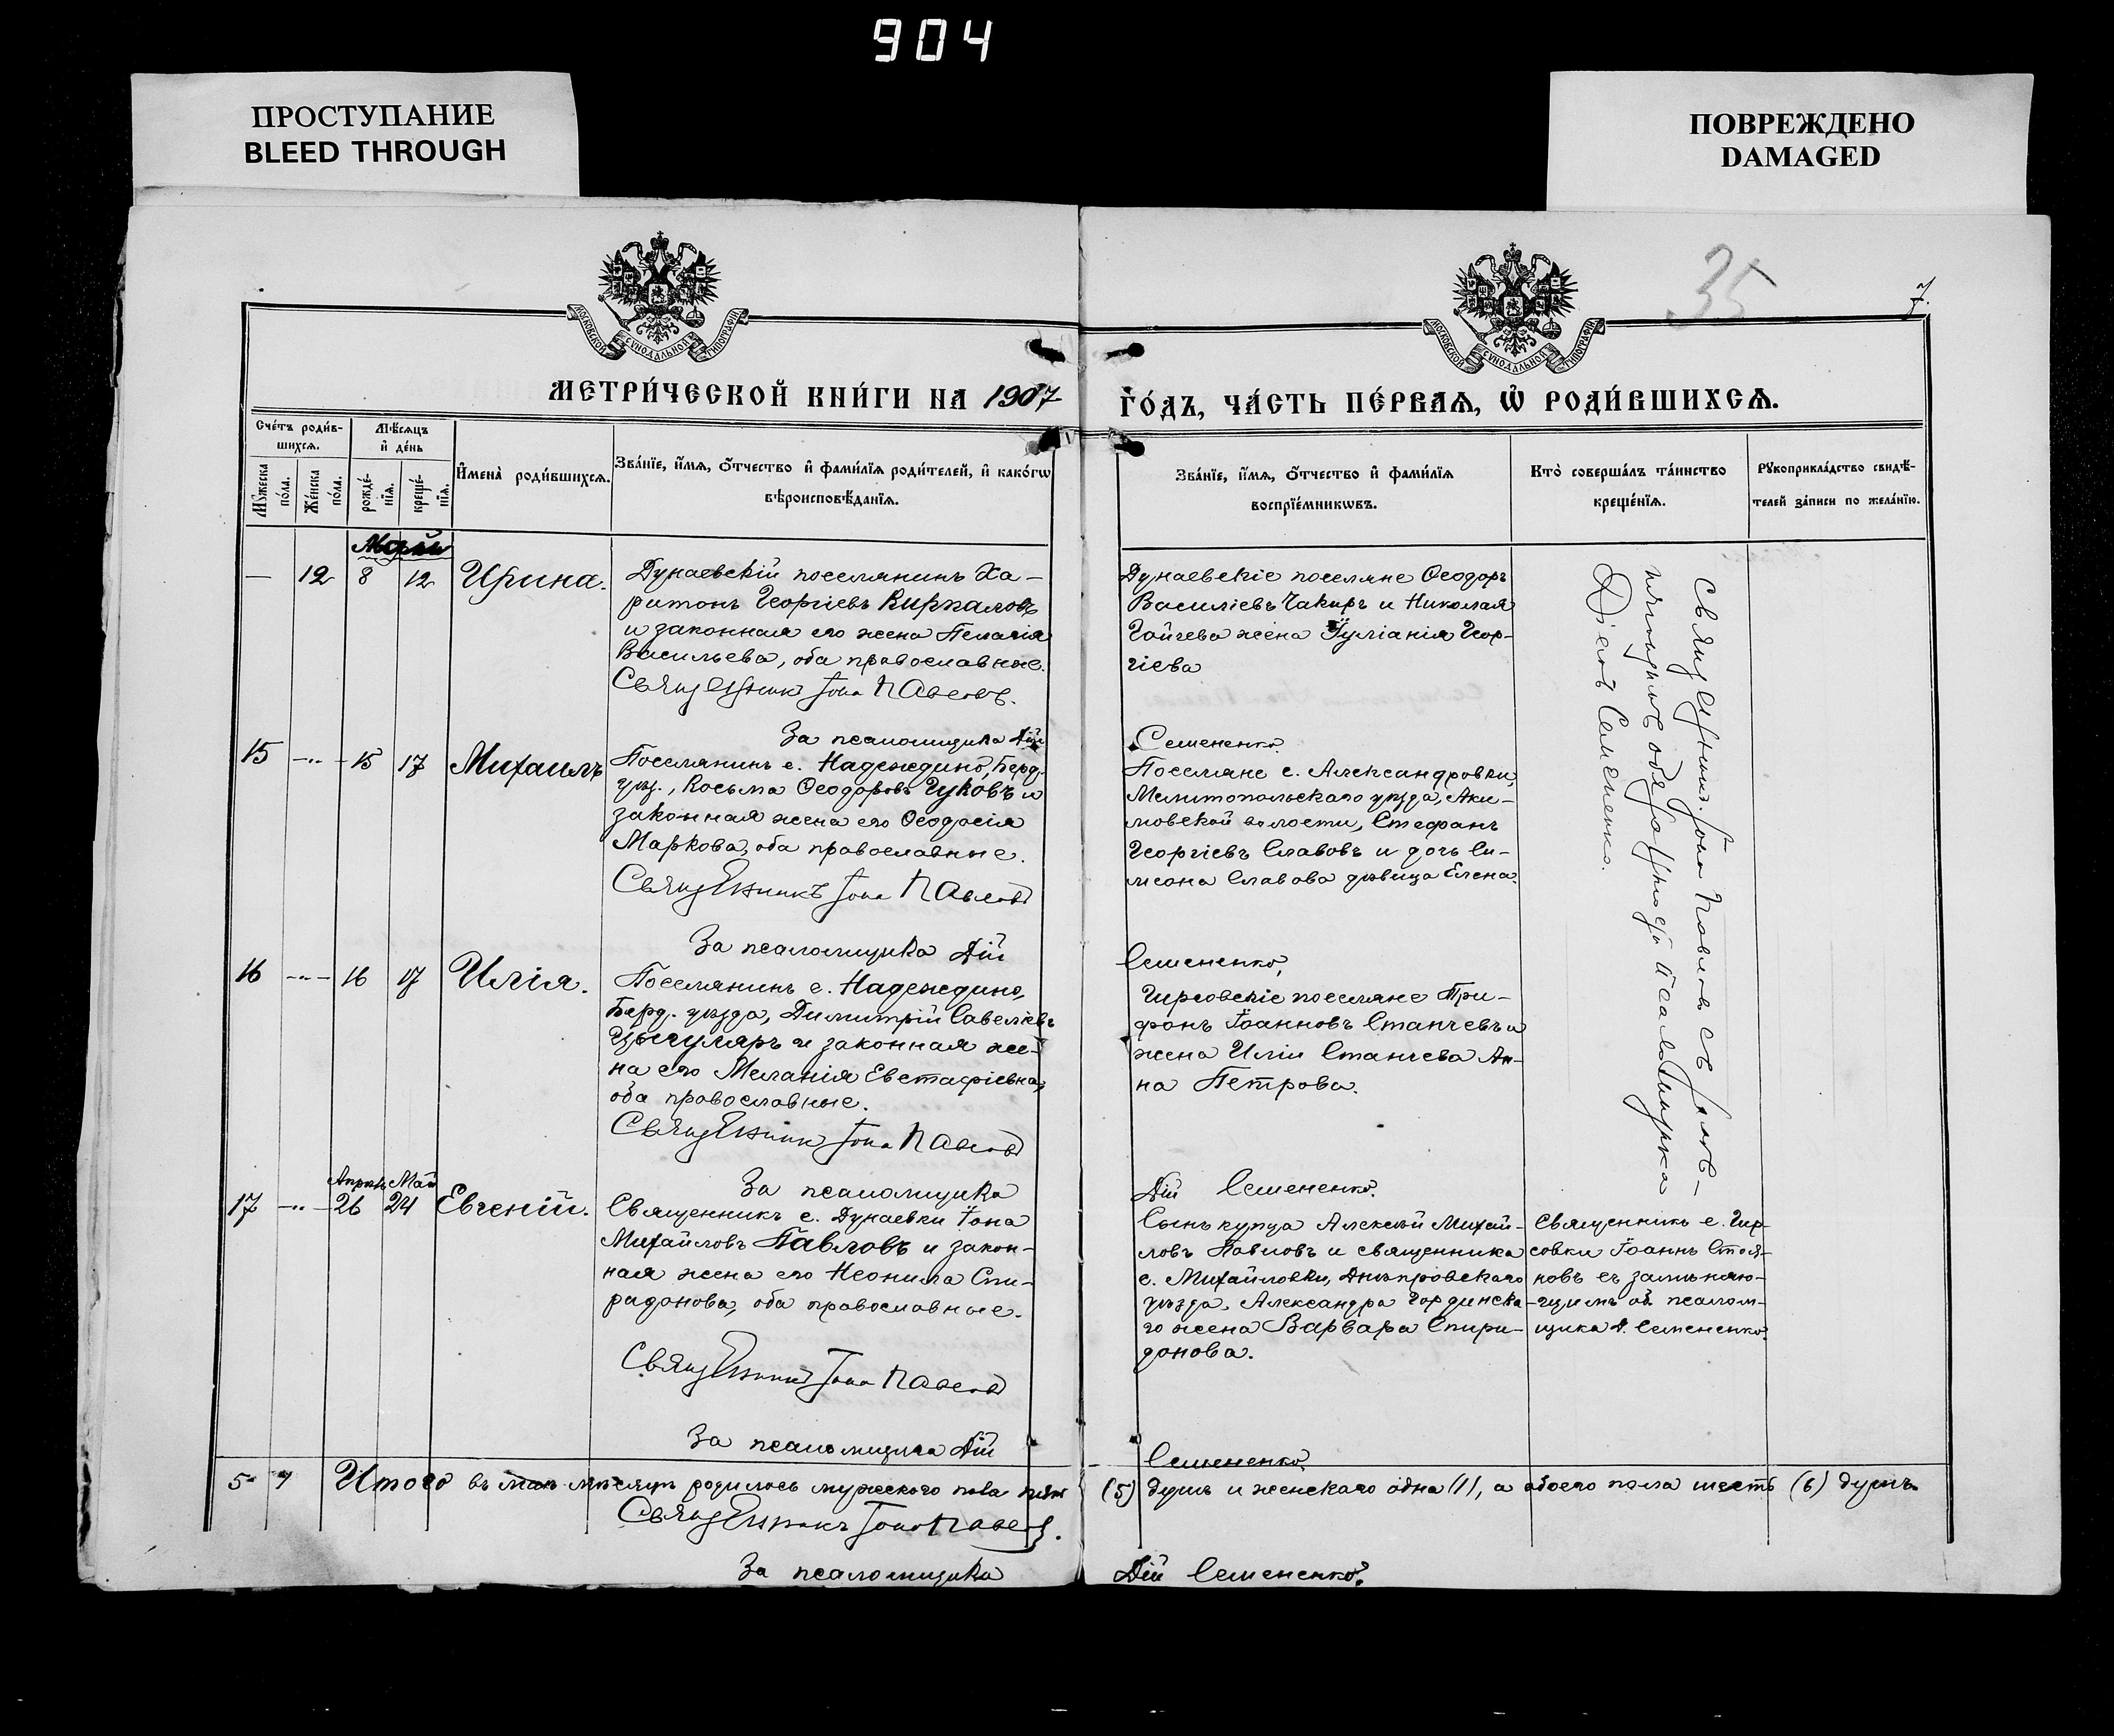 904
ПРОСТУПАНИЕ
BLEED THROUGH
ПОВРЕЖДЕНО
DAMAGED
35
7.
МОСКОВСКОЙ СУНОДАЛЬНОЙ ТИПОГРАФІИ
МОСКОВСКОЙ СУНОДАЛЬНОЙ ТИПОГРАФІИ
МЕТРИ́ЧЕСКОЙ КНИ́ГИ НА 1907
ГО́ДЪ, ЧА́СТЬ ПЕ́РВАЯ, Ѡ҆ РОДИ́ВШИХСЯ.
Сче́тъ роди́в-
шихся.
Мѣ́сяцъ
и҆ де́нь
Мꙋ́жеска
по́ла.
Же́нска
по́ла.
рожде́-
нїя.
креще́-
нїя.
И҆мена̀ роди́вшихся.
Зва́нїе, и҆́мя, ѻ҆́тчество и҆ фами́лїя роди́телей, и҆ како́гѡ
вѣроисповѣ́данїя.
Зва́нїе, и҆́мя, ѻ҆́тчество и҆ фами́лїя
воспрїе́мникѡвъ.
Кто̀ соверша́лъ та́инство
креще́нїя.
Рꙋкоприкла́дство свидѣ́-
телей за́писи по жела́нїю.
Май
— 12 8 12 Ирина.
Дунаевскій поселянинъ Ха-
ритонъ Георгіевъ Кирпаловъ
и законная его жена Пелагія
Васильева, оба православные.
Священник Іона Павловъ.
За псаломщика Дій
Дунаевскіе поселяне Ѳеодоръ
Василіевъ Чакиръ и Николая
Гойчева жена Іуліанія Геор-
гіева
Семененко.
Священникъ Іона Павловъ съ
обязанность псаломщика
Дій Семененко.
15 -„- 15 17 Михаилъ
Поселянинъ с. Надеждино, Берд.
уѣз., Косьма Ѳеодоровъ Чуковъ и
законная жена его Ѳеодосія
Маркова, оба православные.
Священникъ Іона Павловъ
За псаломщика Дій
Поселяне с. Александровки,
Мелитопольскаго уѣзда, Аки-
мовской волости, Стефанъ
Георгіевъ Славовъ и дочь Си-
меона Славова дѣвица Елена.
Семененко,
16 -„- 16 17 Илія.
Поселянинъ с. Надеждино,
Берд. уѣзда, Димитрій Савеліевъ
Цыгуляръ и законная же-
на его Меланія Евстафіевна,
оба православные.
Священник Іона Павловъ
За псаломщика
Гирсовскіе поселяне Три-
фонъ Іоанновъ Станчевъ и
жена Иліи Станчева Ан-
на Петрова.
Дій Семененко.
Апрѣль Май
17 -„- 26 24 Евгеній.
Священникъ с. Дунаевки Іона
Михайловъ Павловъ и закон-
ная жена его Неонила Спи-
ридонова, оба православные.
Священникъ Іона Павловъ
За псаломщика Дій
Сынъ купца Алексѣй Михай-
ловъ Павловъ и священника
с. Михайловки, Днѣпровскаго
уѣзда, Александра Гординска-
го жена Варвара Спири-
донова.
Семененко.
Священникъ с. Гир-
совки Іоаннъ Стоя-
новъ съ замѣняю-
щимъ об. псалом-
щика Д. Семененко.
5 1 Итого въ маѣ мѣсяцѣ родилось мужескаго пола пять (5) душъ и женскаго одна (1), а обоего пола шесть (6) душъ.
Священникъ Іона Павловъ.
За псаломщика Дій Семененко.